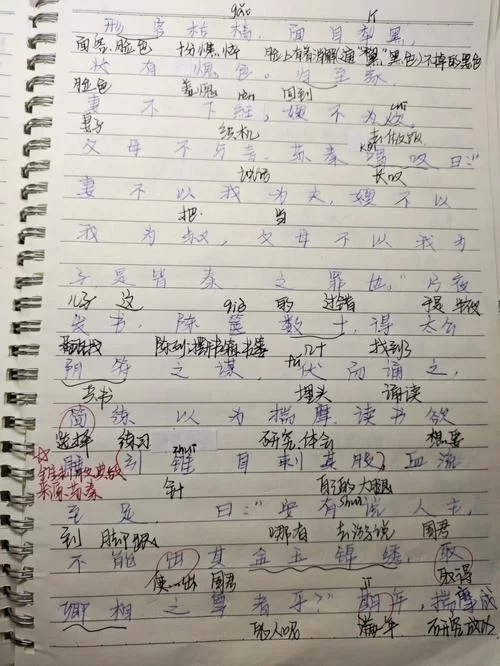 gǎo lí
形容枯槁，面目犁黑，
面容.脸色 十分憔悴 脸上有着消除(通"黧"黑色)不掉的黑色
状有愧色。归至家，
脸色 羞愧 回到
妻不下纴，嫂不为炊，
妻子 织机 去做饭
父母不与言。苏秦喟叹曰："
说话 长叹
妻不以我为夫，嫂不以
把 当
我为叔，父母不以我为
子是皆秦之罪也。"乃夜
儿子 这 的 过错 于是 半夜
发书，陈箧数十，得太公
陈列 几十 找到了
阴符之谋，伏而诵之，
兵书 埋头 诵读
简练以为揣摩。读书欲
选择 练习 研究.体会 想要
睡引锥自刺其股，血流
针 自己的大腿
至足，曰："安有说人主，
到 脚跟 哪有 去游说 国君
不能出其金玉锦绣，取
使…出 国君 取得
卿相之尊者乎？"期年，揣摩成
的人呢 满一年 研究成功